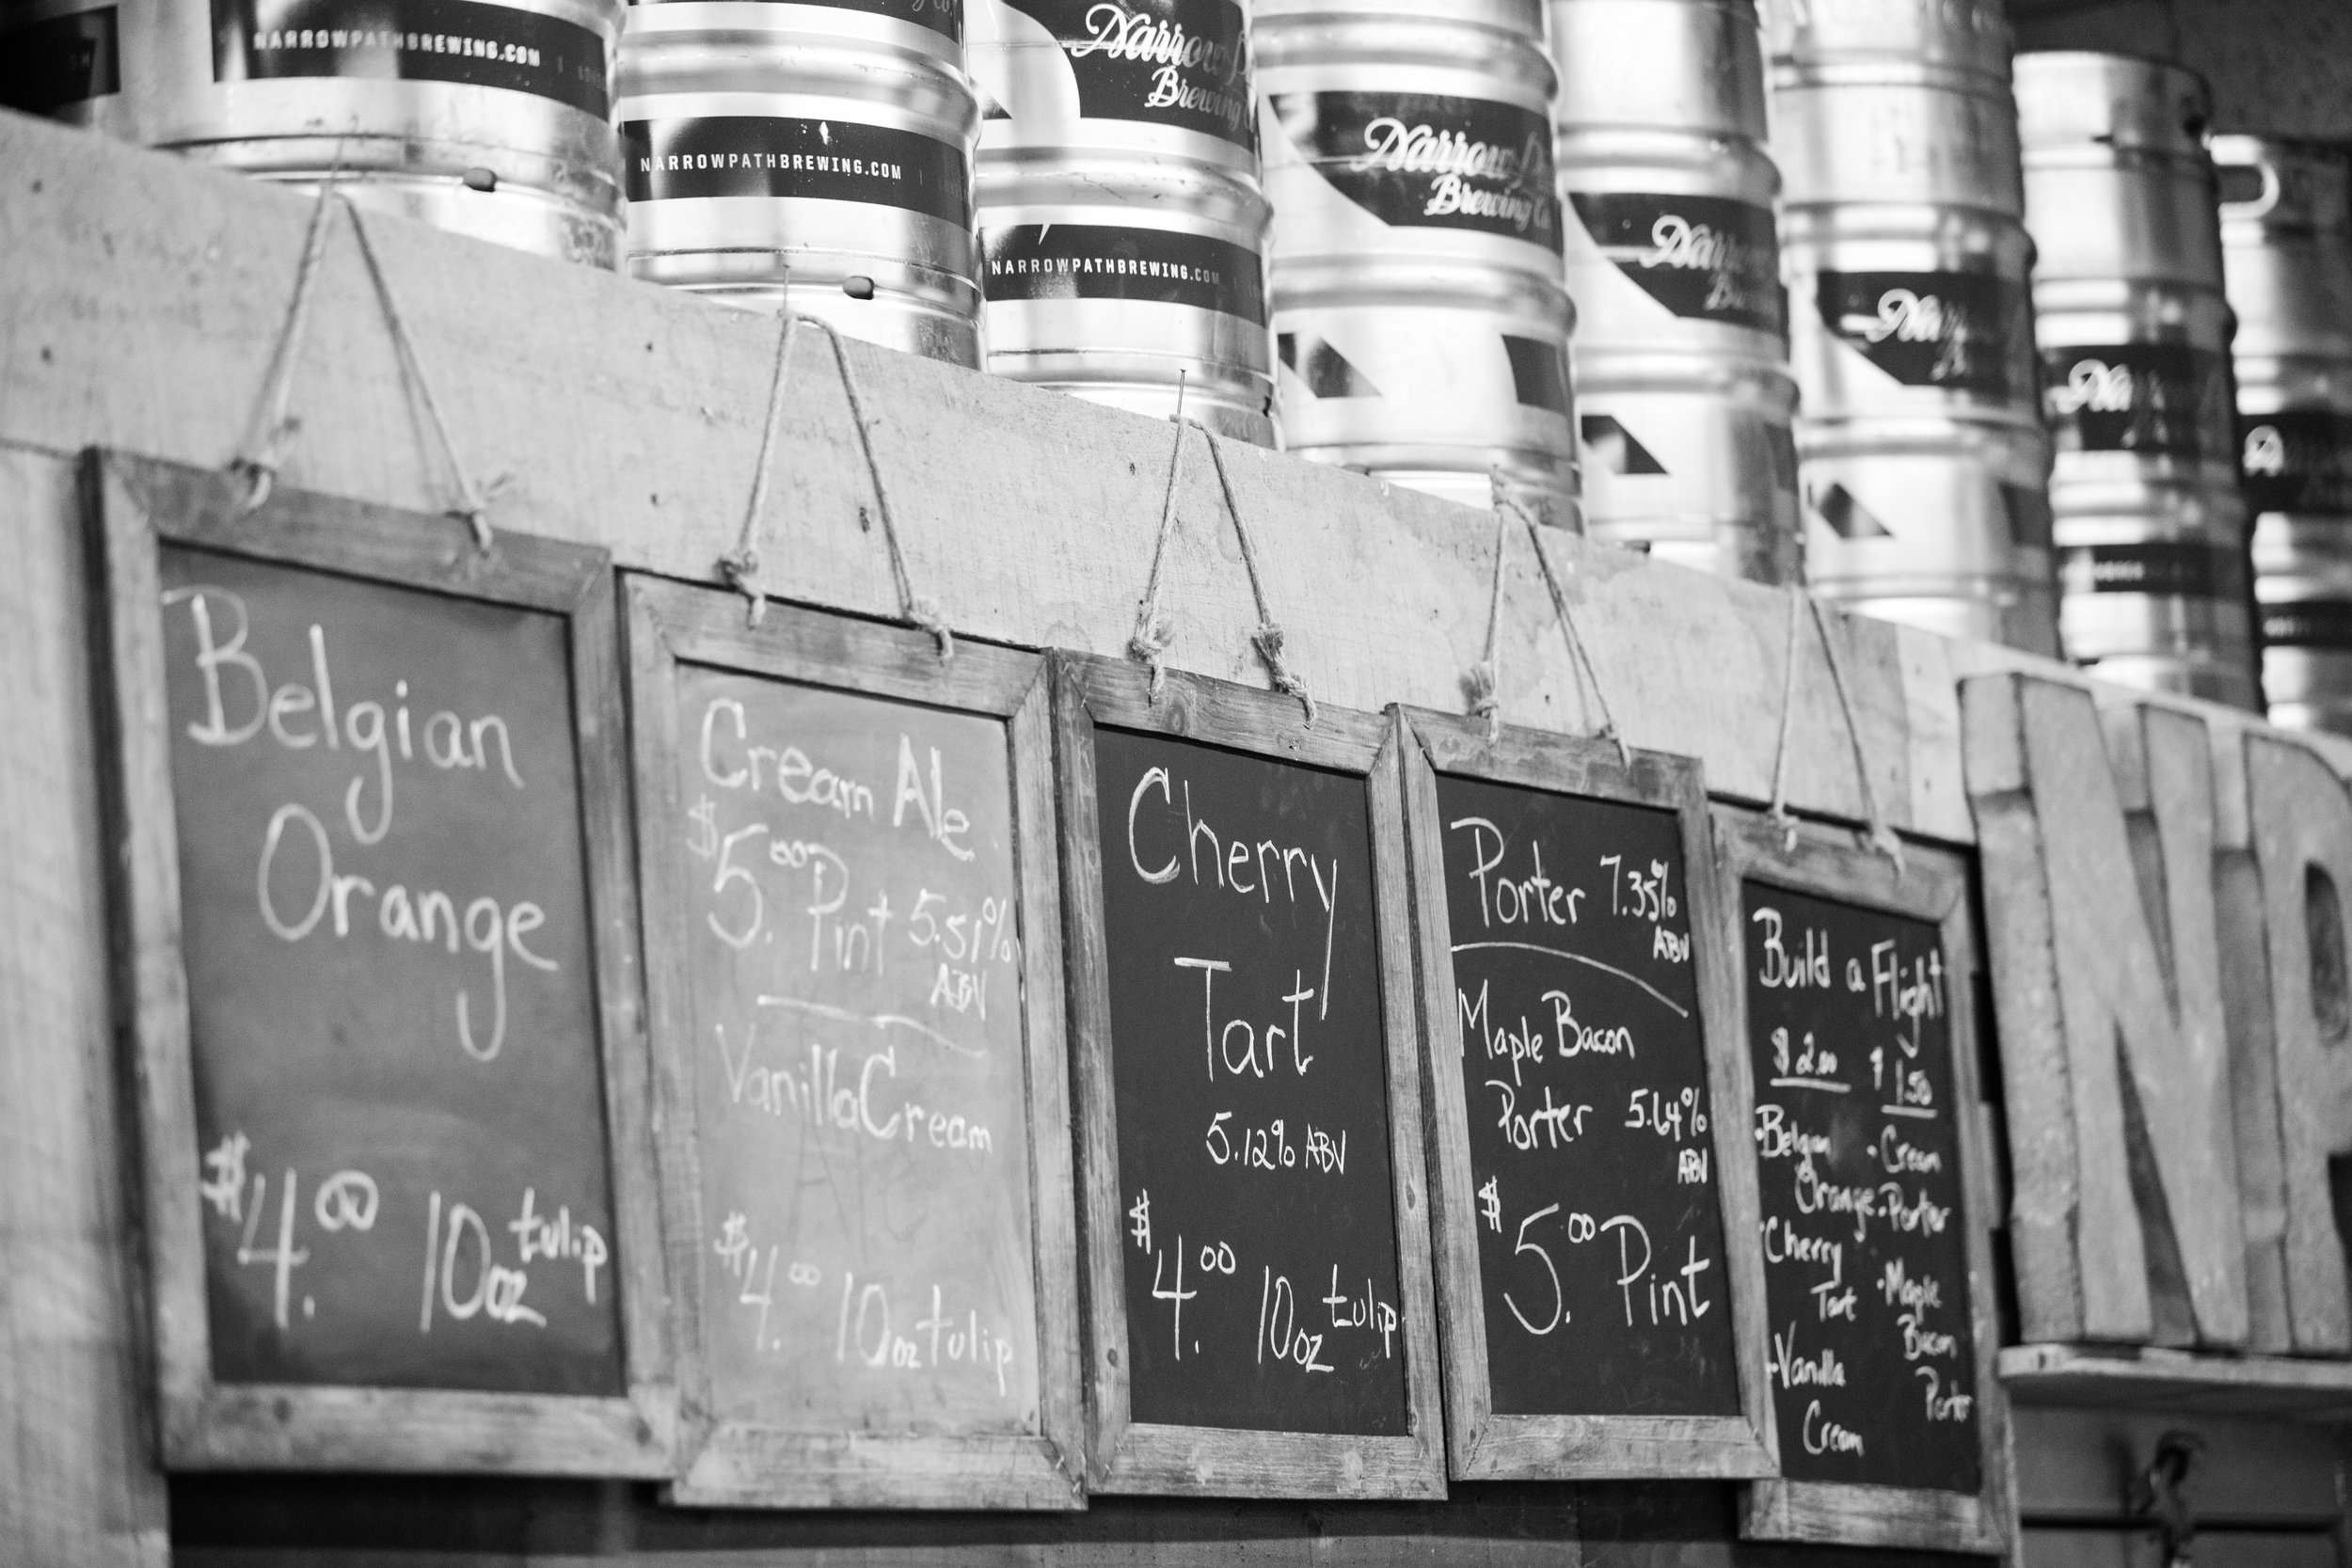 NARROWPATHBREWING.COM
NARROWPATHBREWING.COM
Narrow
Brewing
NARROWPATHBREWING.COM
Narrow
Brewing Co
Belgian
Orange
$4.00 10oz tulip
Cream Ale
$5.00 Pint 5.51%
ABV
Vanilla Cream
$4.00 10oz tulip
Cherry
Tart
5.12% ABV
$4.00 10oz tulip
Porter 7.35%
ABV
Maple Bacon
Porter 5.64%
ABV
$5.00 Pint
Build a Flight
$2.00
·Belgian
Orange
·Cherry
Tart
·Vanilla
Cream
$1.50
·Cream
·Porter
·Maple
Bacon
Porter
NP